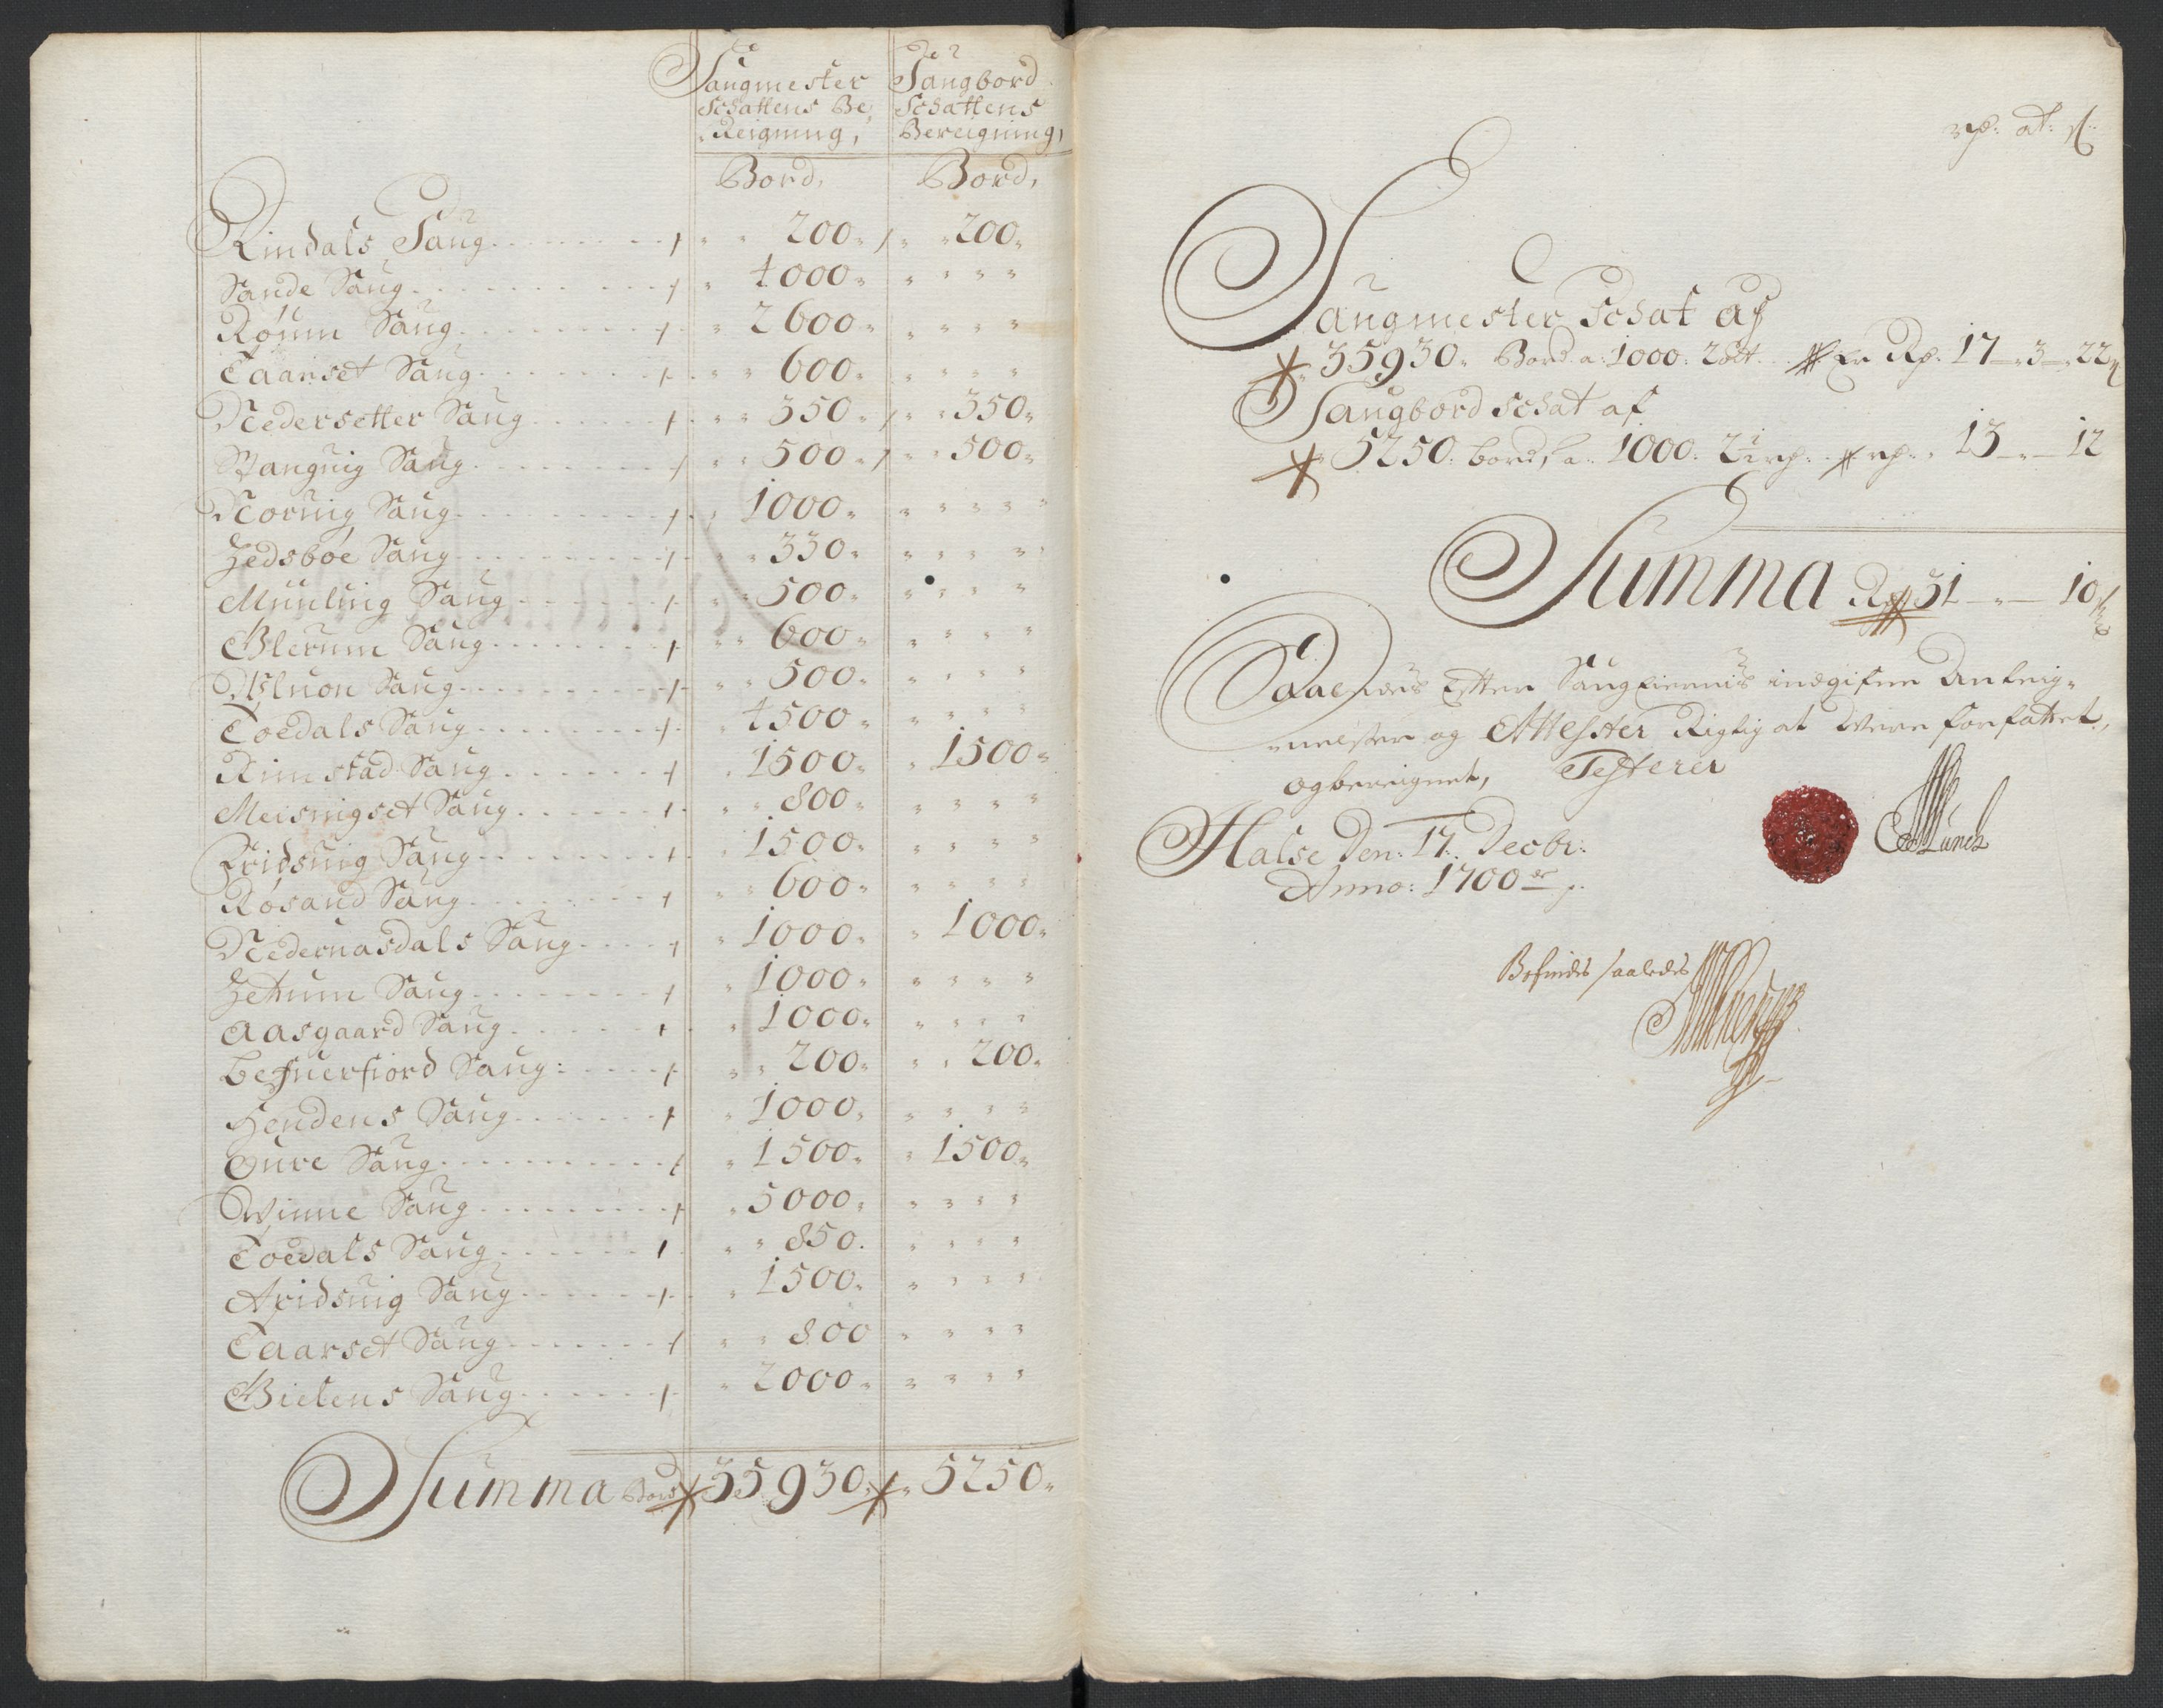 Saugmester Schattens Be-
Reigning,
Saugbord Schattens
Bereigning,
Bord, Bord,
Rindals Saug 200 200
Sande Saug 4000
Røum Saug 2600
Taarset Saug 600
Nedersetter Saug 350 350
Wanguig Saug 500 500
Noruig Saug 1000
Hedsboe Saug 330
Muuluig Saug 500
Blerum Saug 600
Saug 500
Toedals Saug 4500
Rimstad Saug 1500 1500
Meisnigset Saug 800
Fridsuig Saug 1500
Røsand Saug 600
Nedernasdals Saug 1000 1000
Hettum Saug 1000
Aasgaard Saug 1000
Befuerfiord Saug: 200 200
Hendens Saug 1000
Oure Saug 1500 1500
Winne Saug 5000
Toedals Saug 850.
Aridsuig Saug 1500
Taarset Saug 800
Bielens Saug 2000
Summa Bord 35930 5250
rp: at: s:
Saugmester Schat af
35930 Bord a: 1000: 2 Er Rp: 17 3 22
Saugbord schat af
5250 bord, a: 1000: 2½ rp: rp: 13 12
Summa Rp 31 10
Saaledis Efter Saugfiernis indgifne Anteig-
nelser og Attester Rigtig at Were forfattet,
og bereignet, Testerer
Halse Den: 17: Decbr:
Anno: 1700
Munch
Befindes saaledes